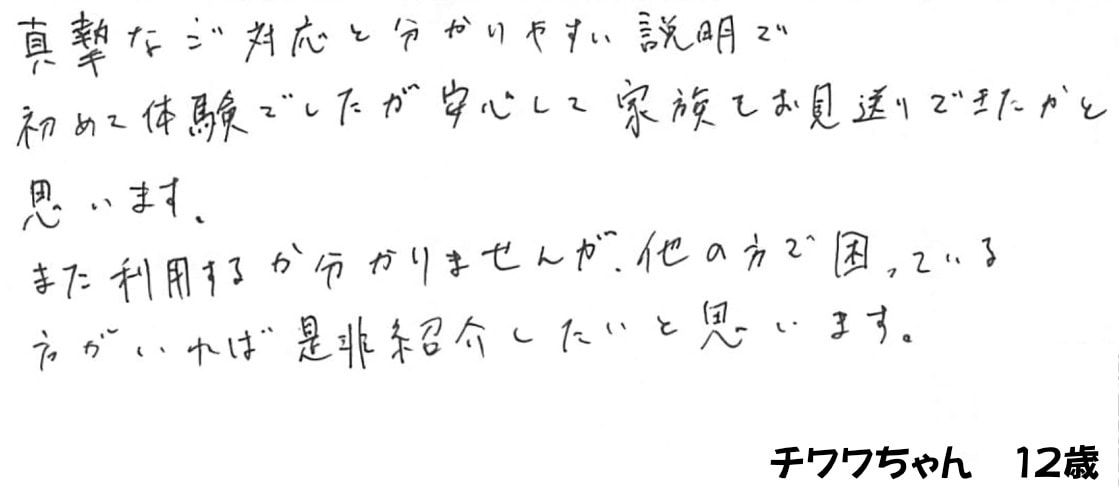 真摯なご対応と分かりやすい説明で
初めて体験でしたが安心して家族をお見送りできたかと
思います。
また利用するか分かりませんが、他の方で困っている
方がいれば是非紹介したいと思います。
チワワちゃん 12歳